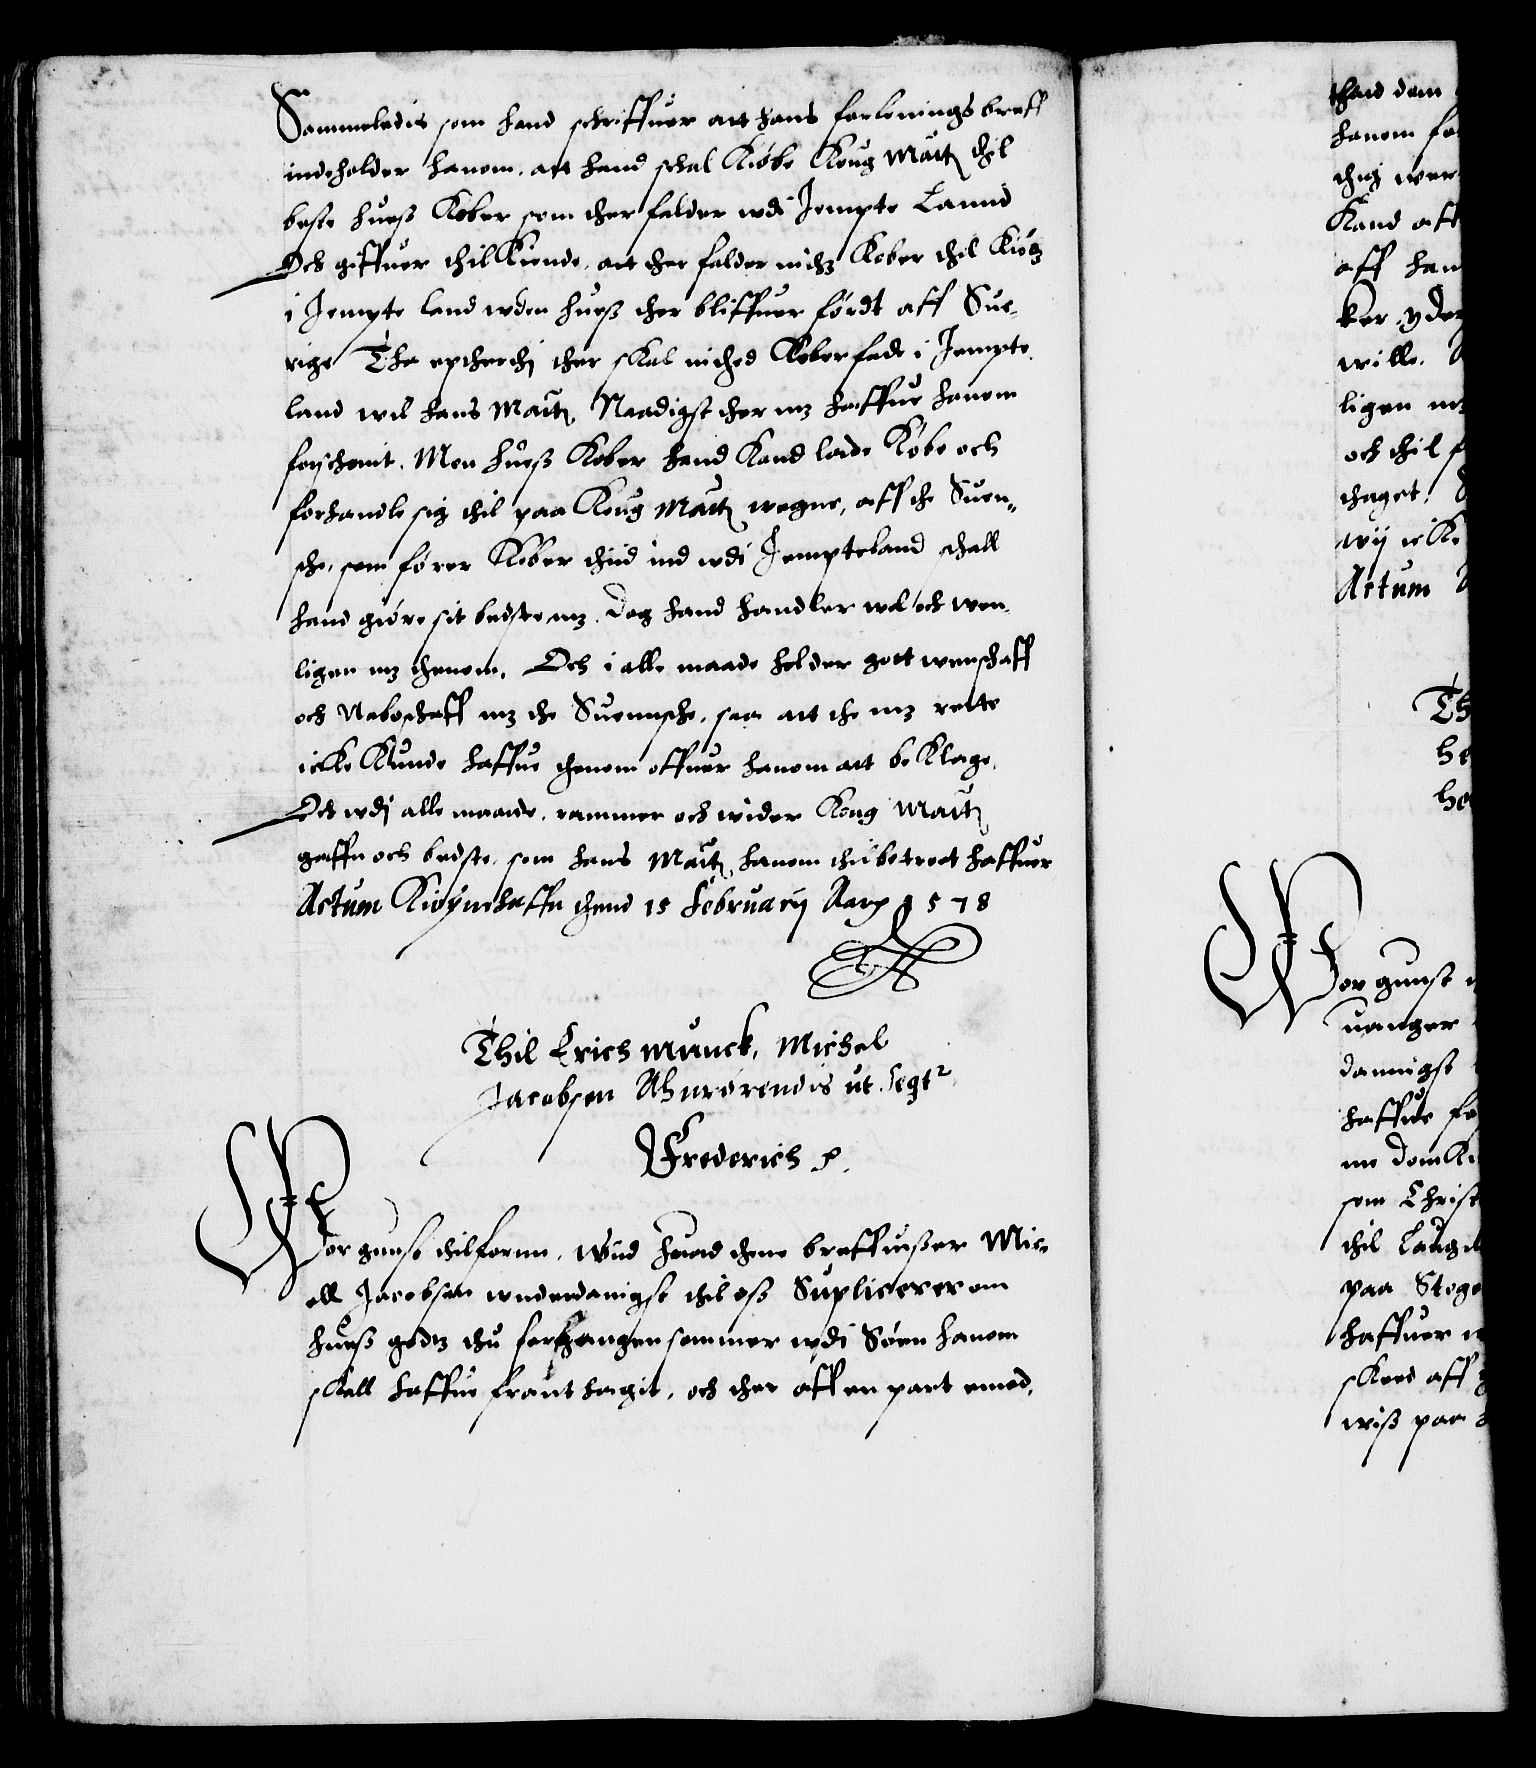 Sammeledis som hand schriffuer att hans forlenings breff
indeholder hanom, att hand schal Kiøbe Kong Maitz thil
beste huess Kober som ther falder wdi Jempte Lannd
Och giffuer thilkiende, att ther falder nichz Kober thil Kiøbz
i Jempte land wden huess ther bliffuer førdt aff Sue-
rige Tha epcherthj ther skal inthed Kober fade i Jempte
land wil hans Maitz Naadigst ther mz haffue hanom
forschonit. Men huess Kober hand Kand lade Købe och
forhandle sig thil paa Kong Maitz wegne, aff the Suen-
sche, som fører Kober thiid ind wdi Jempteland schall
hand giøre sit bedste mz. dog hand handler wel och wen-
ligen mz thenom. Och i alle maade holder gott wenschaff
och Naboschaff mz the Suennsche, saa att the mz rette
icke Kunde haffue thenom offuer hanom att beklage.
Och wdj alle maade, rammer och wider Kong Maitz
gaffn och bedste, som hans Maitz hanom thilbetroet haffuer
Actum Kiøpnehaffn thend 15 February Aarz 1578
Thil Erich Munck, Michel
Jacobsen Ahnrørendis ut. Seqtr
Frederich 2.
Wor gunst thilfornn. Wiid huad thene breffuisser Mic-
ell Jacobsen wnderdanigst thil oss Supliceerer om
huess godtz thu forgangen sommer wdi Søen hanom
skall haffue frant tagit, och ther aff en part emod,
thend dem
hanom
thig
Kand aff
aff han
ker
wille.
ligen mz
och thil
thaget.
wij icke
Actum
Th
he
he
Wor gunst
uanger
dannigst
haffue
ne domki
som Christ
thil Laug
paa
haffuer
skeed aff
wiss paa